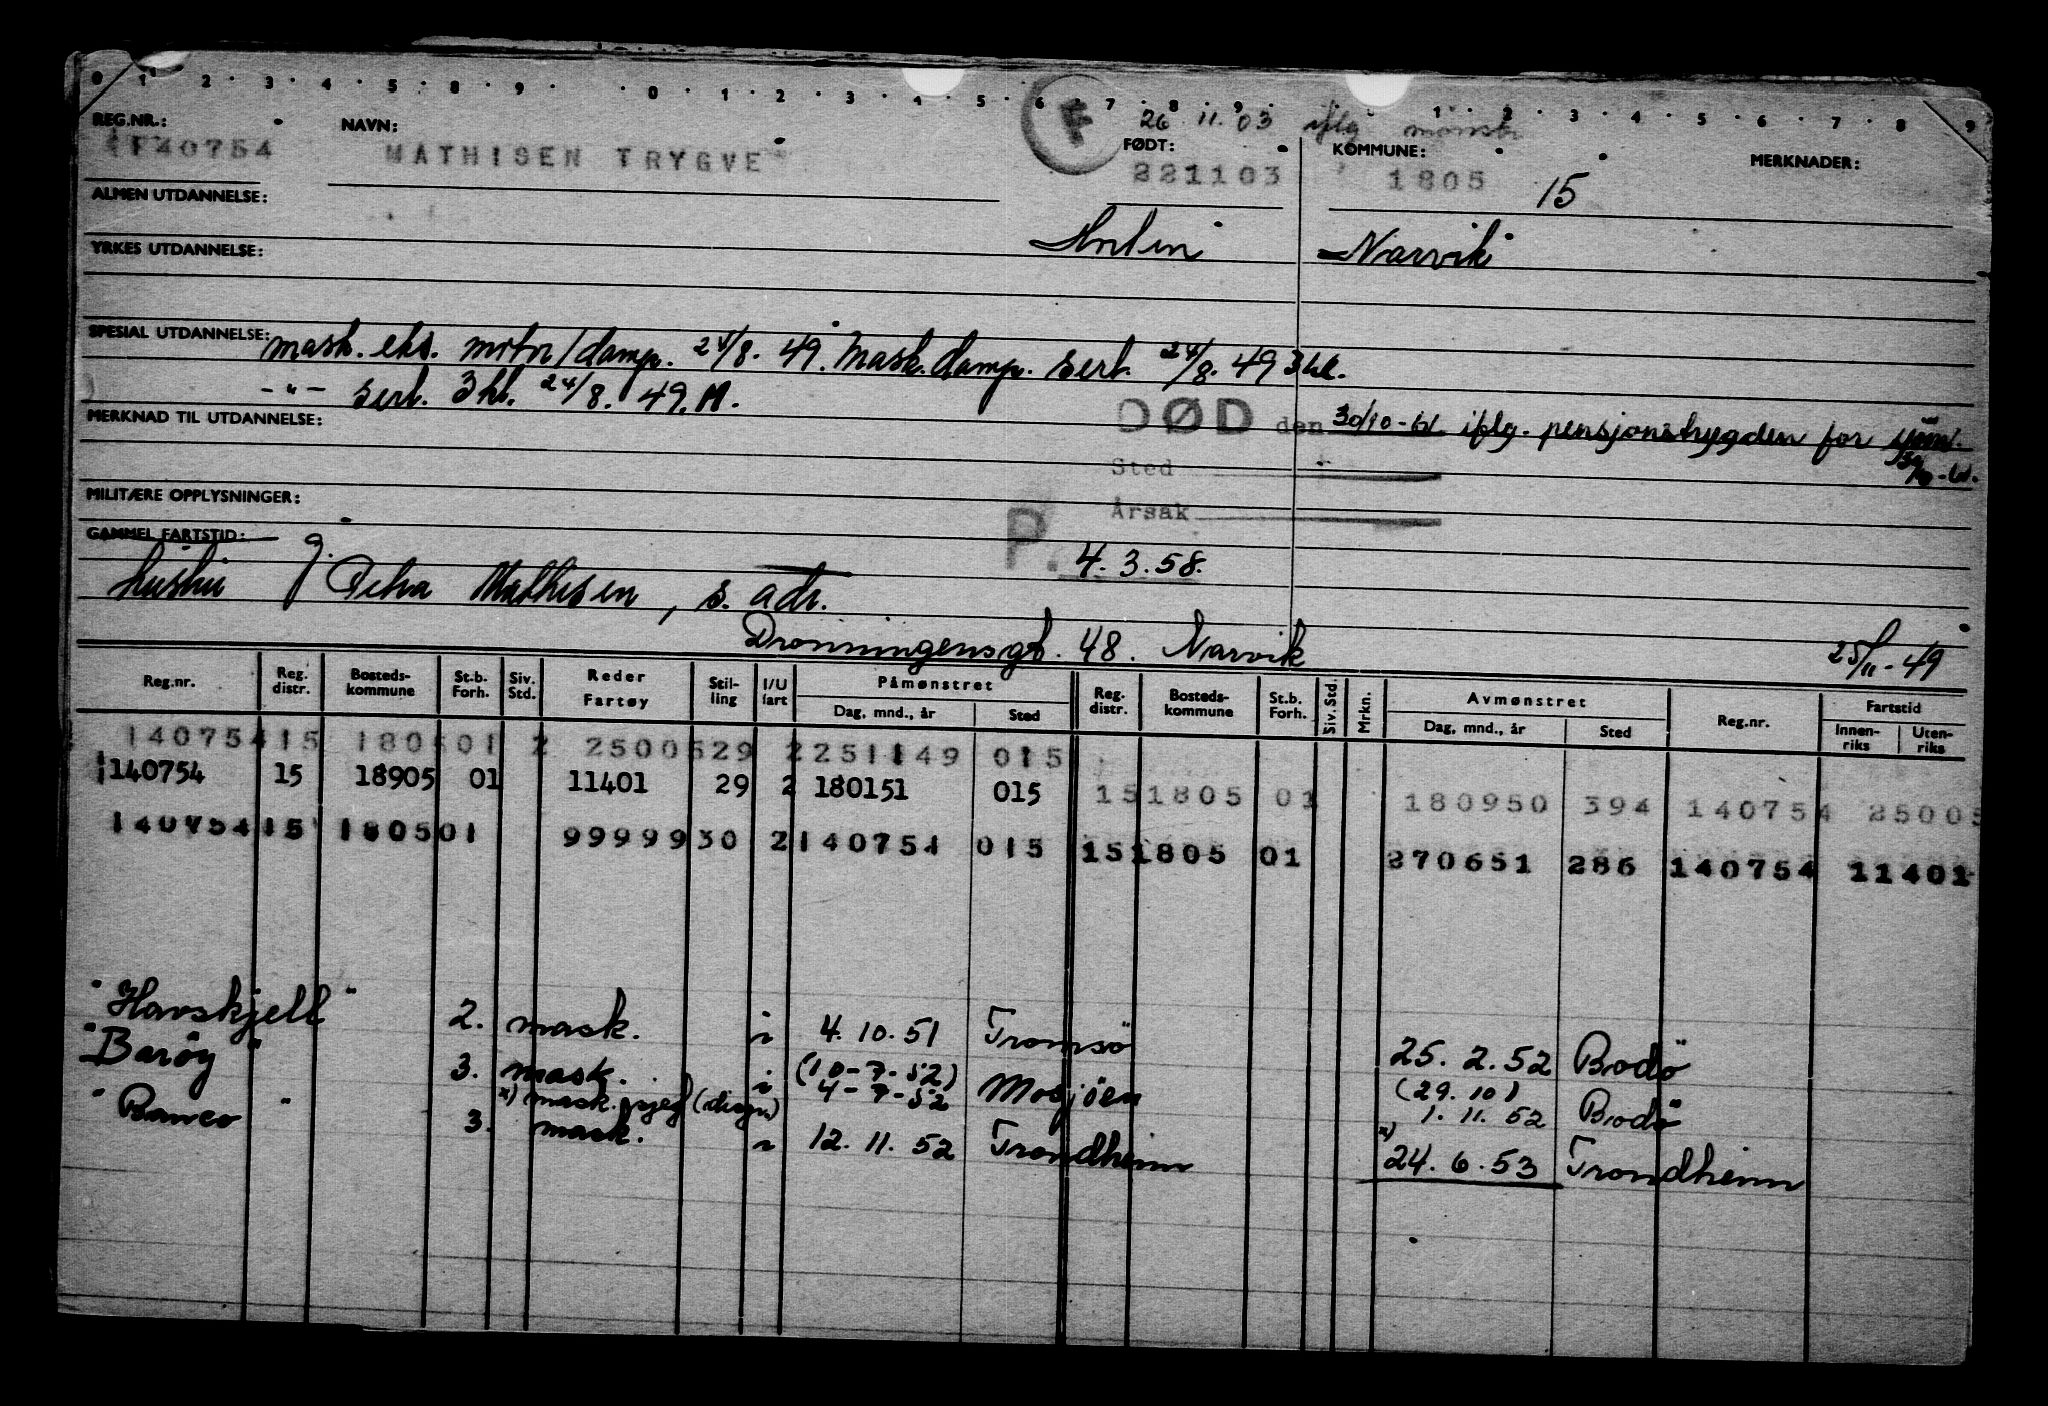 0 1 2 3 4 5 8 9 0 1 2 3 4 5 6 7 8 9 1 2 3 4 5 6 7 8 9
F 26 11.03 iflg mønstr
REG.NR.: NAVN: FØDT: KOMMUNE: MERKNADER:
140754 MATHISEN TRYGVE 221103 1805 15
ALMEN UTDANNELSE:
Narvik
YRKES UTDANNELSE:
SPESIAL UTDANNELSE: mask. eks. motor/damp. 24/8. 49. Mask. damp. sert. 24/8. 49 3 kl.
-"- sert. 3 kl. 24/8. 49. M.
MERKNAD TIL UTDANNELSE: DØD den 30/10-61 iflg. pensjonstrygden for sjøm.
Sted
MILITÆRE OPPLYSNINGER: Årsak
GAMMEL FARTSTID: P. 4.3.58.
hustru Petra Mathisen, s. adr.
Dronningensgt. 48. Narvik 25/11-49
Reg.nr. Reg. distr. Bosteds-kommune St.b. Forh. Siv. Std. Reder Fartøy Stil-ling I/U fart Påmønstret Dag, mnd., år Sted Reg. distr. Bosteds-kommune St.b. Forh. Siv. Std. Mrkn. Avmønstret Dag, mnd., år Sted Reg.nr. Fartstid Innen-riks Uten-riks
140754 15 1805 01 2 25005 29 2 251149 015
140754 15 18905 01 11401 29 2 180151 015 15 1805 01 180950 394 140754 25005
140754 15 1805 01 99999 30 2 140751 015 15 1805 01 270651 286 140754 11401
"Havskjell" 2. mask. i 4.10.51 Tromsö 25.2.52 Bodö
"Barøy" 3. mask. i (10-7-52) 4-7-52 Mosjöen (29.10) 1.11.52 Bodö
x) mask.
"Ranveo" 3. mask. i 12.11.52 Trondheim x) 24.6.53 Trondheim